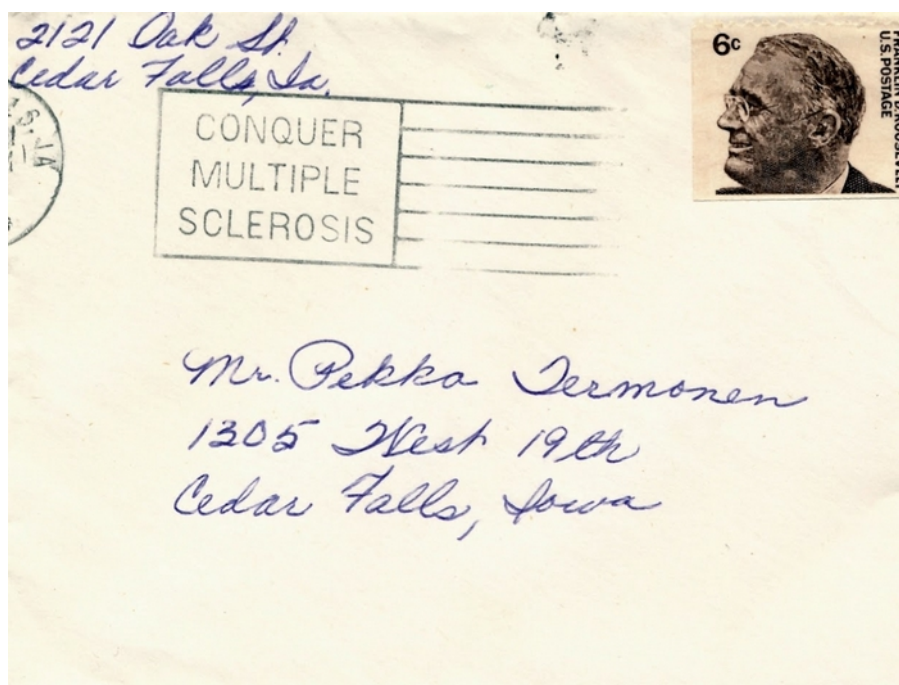 2121 Oak St.
Cedar Falls, Ia.
S, IA
CONQUER
MULTIPLE
SCLEROSIS
6c
FRANKLIN D. ROOSEVELT
U.S. POSTAGE
Mr. Pekka Termonen
1305 West 19th
Cedar Falls, Iowa